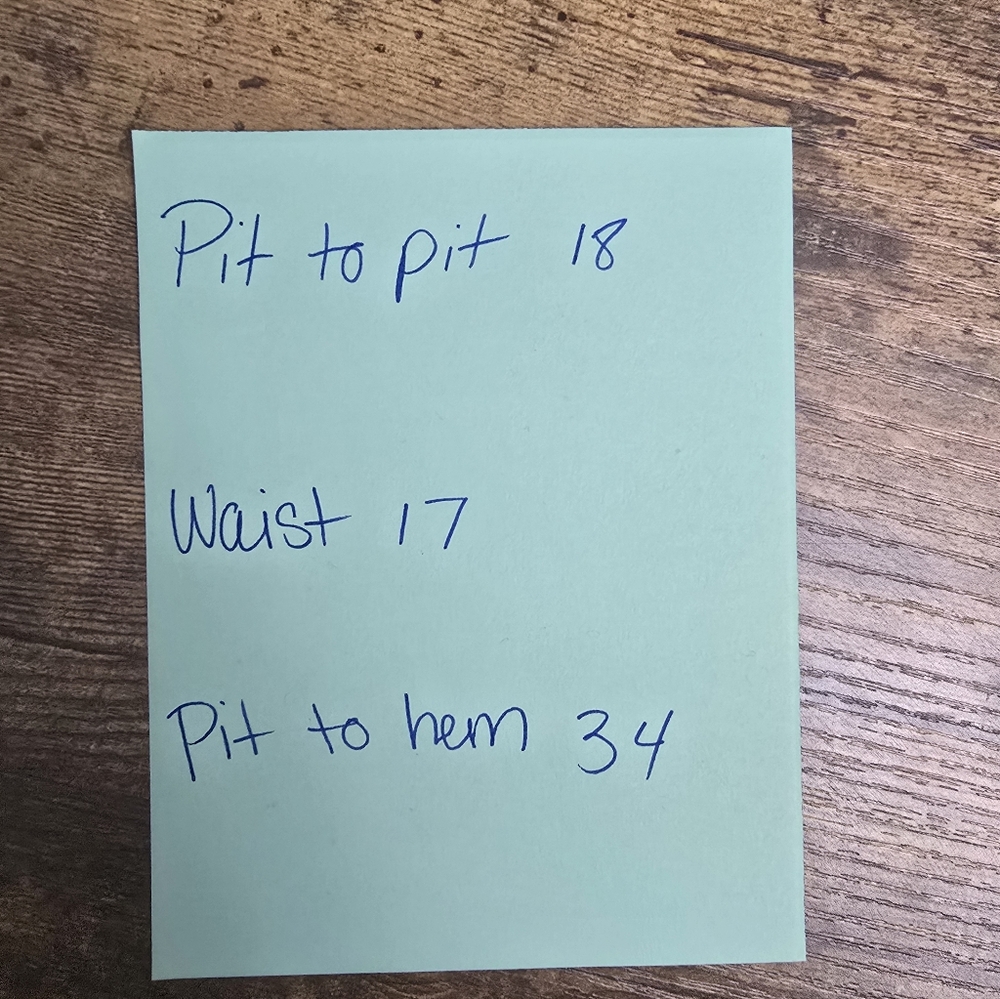 Pit to pit 18
Waist 17
Pit to hem 34